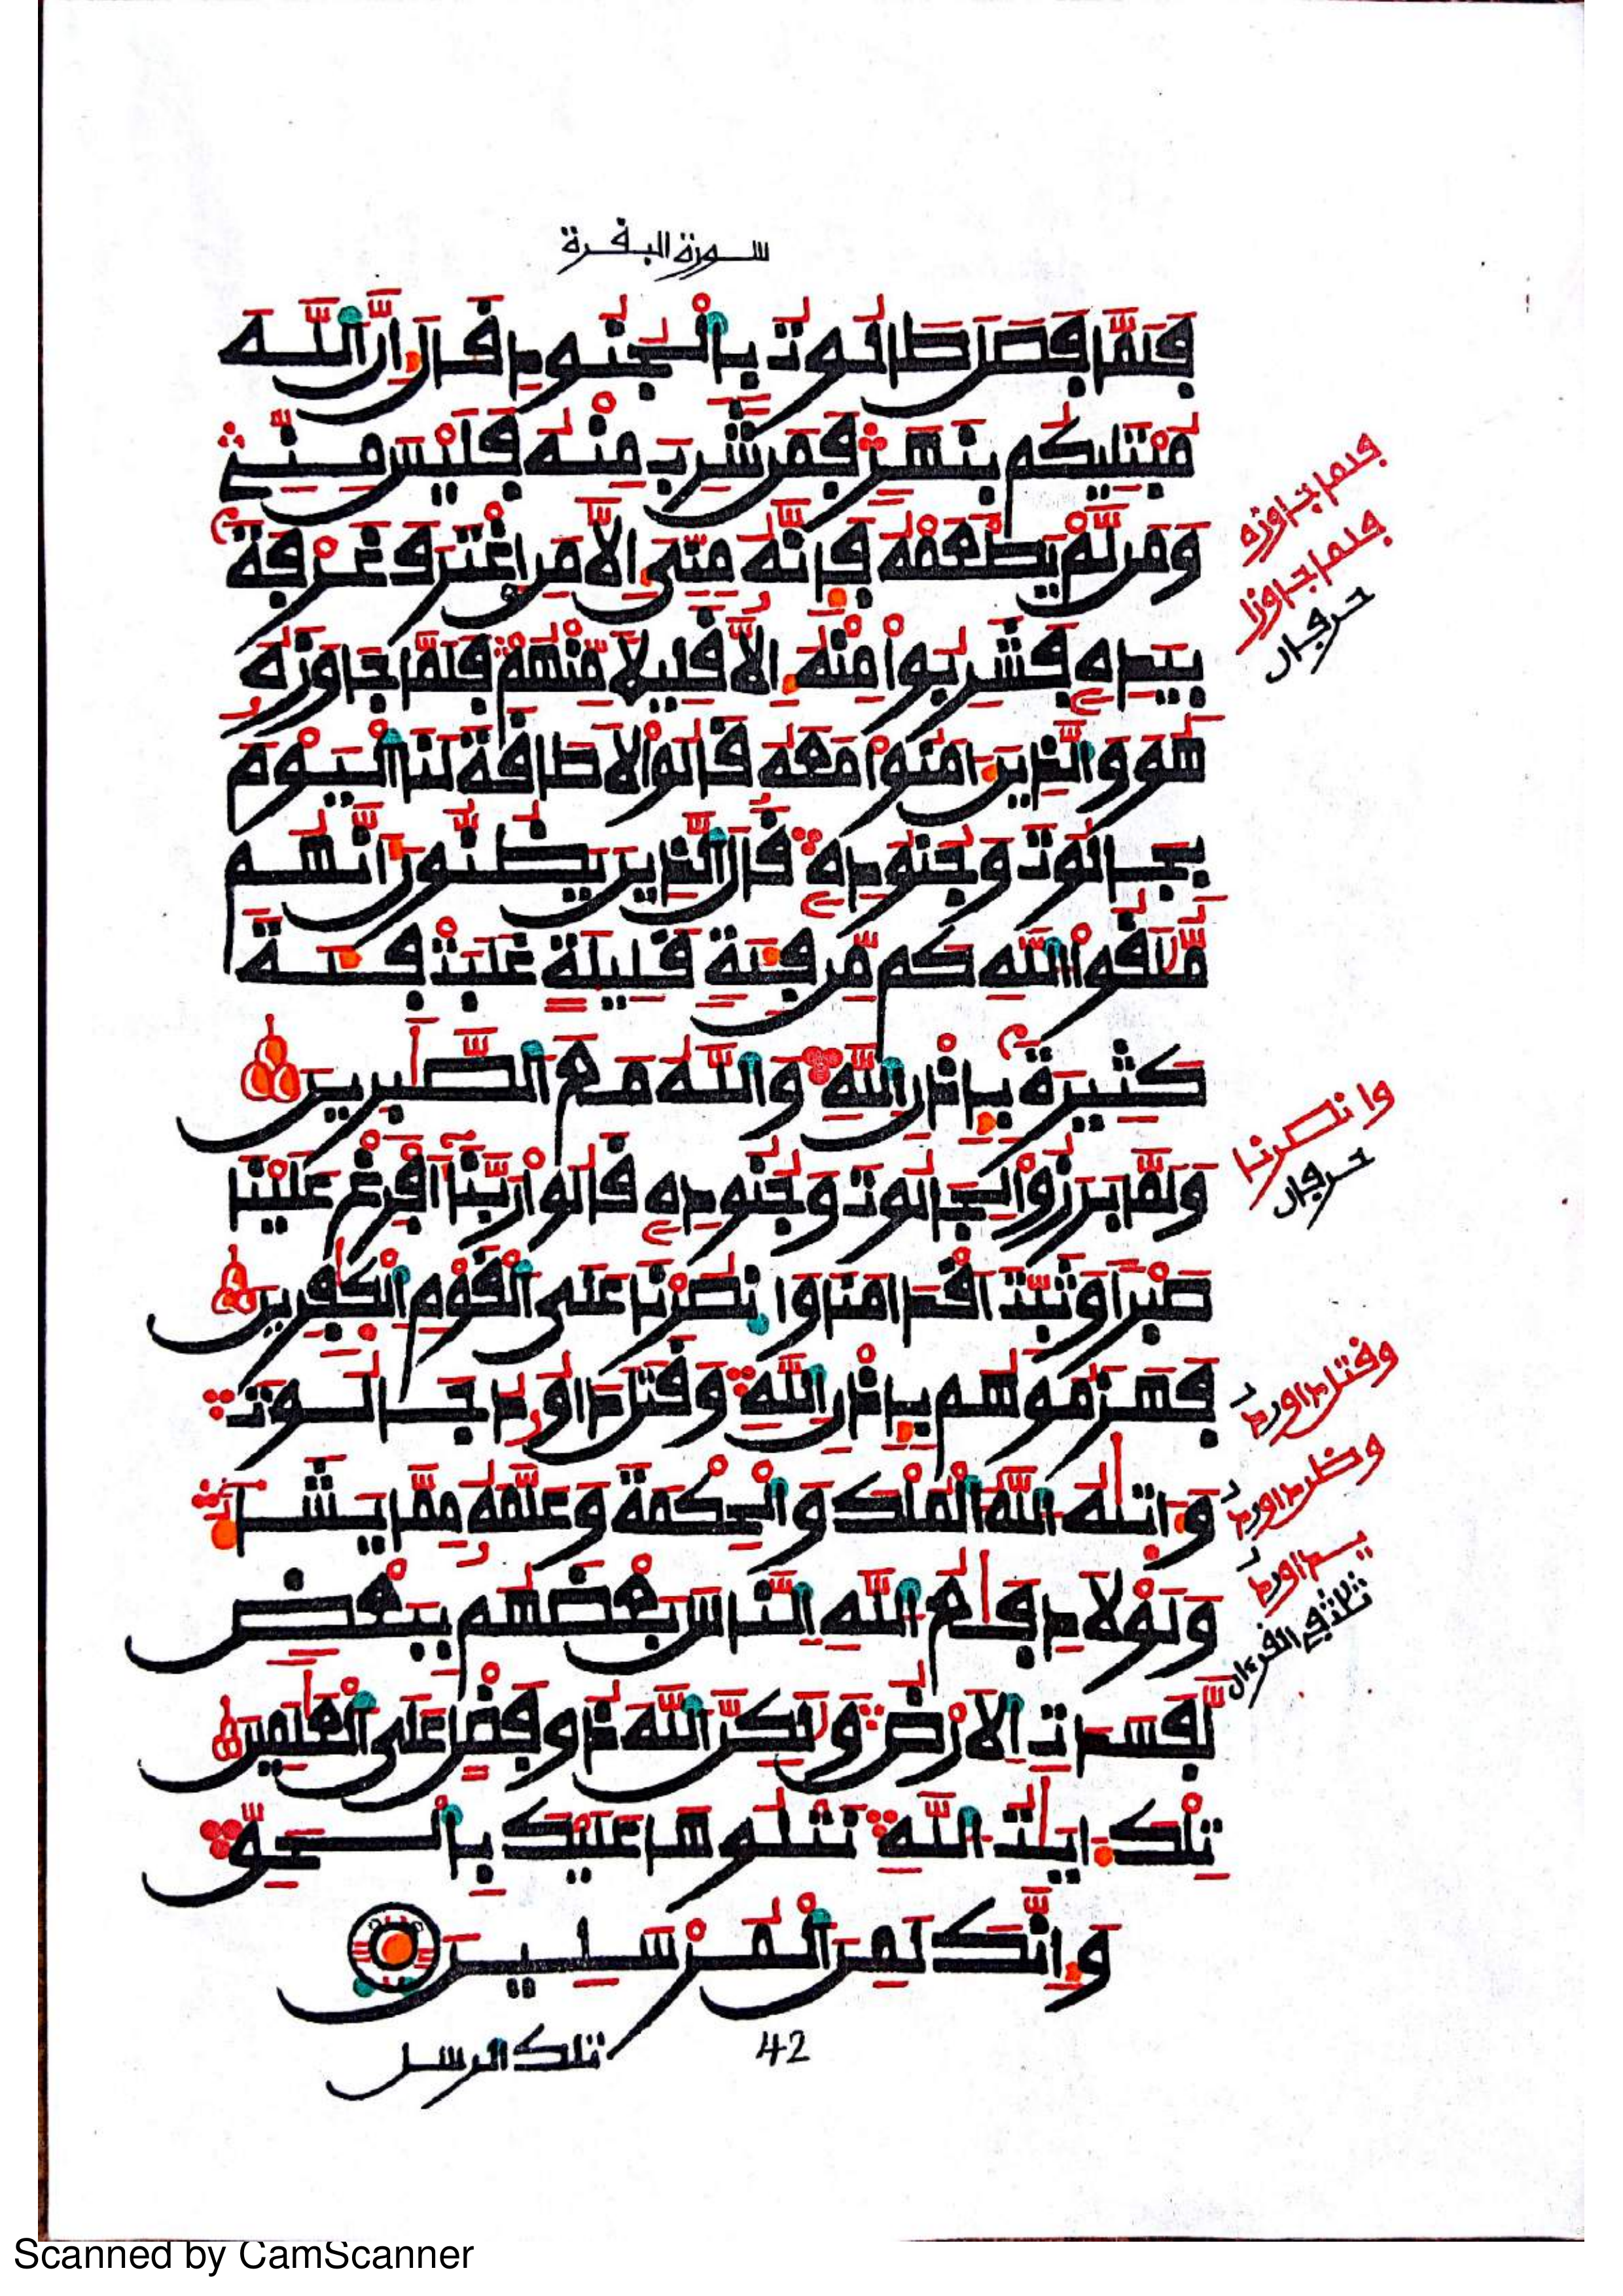 سورة البقرة
فَلَمَّا فَصَلَ طَالُوتُ بِالْجُنُودِ قَالَ إِنَّ اللَّهَ
مُبْتَلِيكُم بِنَهَرٍ فَمَن شَرِبَ مِنْهُ فَلَيْسَ مِنِّي
وَمَن لَّمْ يَطْعَمْهُ فَإِنَّهُ مِنِّيَ إِلَّا مَنِ اغْتَرَفَ غَرْفَةً
بِيَدِهِ فَشَرِبُوا مِنْهُ إِلَّا قَلِيلًا مِّنْهُمْ فَلَمَّا جَاوَزَهُ
هُوَ وَالَّذِينَ ءَامَنُوا مَعَهُ قَالُوا لَا طَاقَةَ لَنَا الْيَوْمَ
بِجَالُوتَ وَجُنُودِهِ قَالَ الَّذِينَ يَظُنُّونَ أَنَّهُم
مُّلَٰقُوا اللَّهِ كَم مِّن فِئَةٍ قَلِيلَةٍ غَلَبَتْ فِئَةً
كَثِيرَةً بِإِذْنِ اللَّهِ وَاللَّهُ مَعَ الصَّٰبِرِينَ
وَلَمَّا بَرَزُوا لِجَالُوتَ وَجُنُودِهِ قَالُوا رَبَّنَا أَفْرِغْ عَلَيْنَا
صَبْرًا وَثَبِّتْ أَقْدَامَنَا وَانصُرْنَا عَلَى الْقَوْمِ الْكَٰفِرِينَ
فَهَزَمُوهُم بِإِذْنِ اللَّهِ وَقَتَلَ دَاوُدُ جَالُوتَ
وَءَاتَىٰهُ اللَّهُ الْمُلْكَ وَالْحِكْمَةَ وَعَلَّمَهُ مِمَّا يَشَاءُ
وَلَوْلَا دِفَٰعُ اللَّهِ النَّاسَ بَعْضَهُم بِبَعْضٍ
لَّفَسَدَتِ الْأَرْضُ وَلَٰكِنَّ اللَّهَ ذُو فَضْلٍ عَلَى الْعَٰلَمِينَ
تِلْكَ ءَايَٰتُ اللَّهِ نَتْلُوهَا عَلَيْكَ بِالْحَقِّ
وَإِنَّكَ لَمِنَ الْمُرْسَلِينَ
42
تلك الرسل
فلما جاوزه
فلما جاوزا
حرفان
وانصرنا
حرفان
وقتل داورد
وظن داورد
يداورد
ثلث في القرءان
Scanned by CamScanner